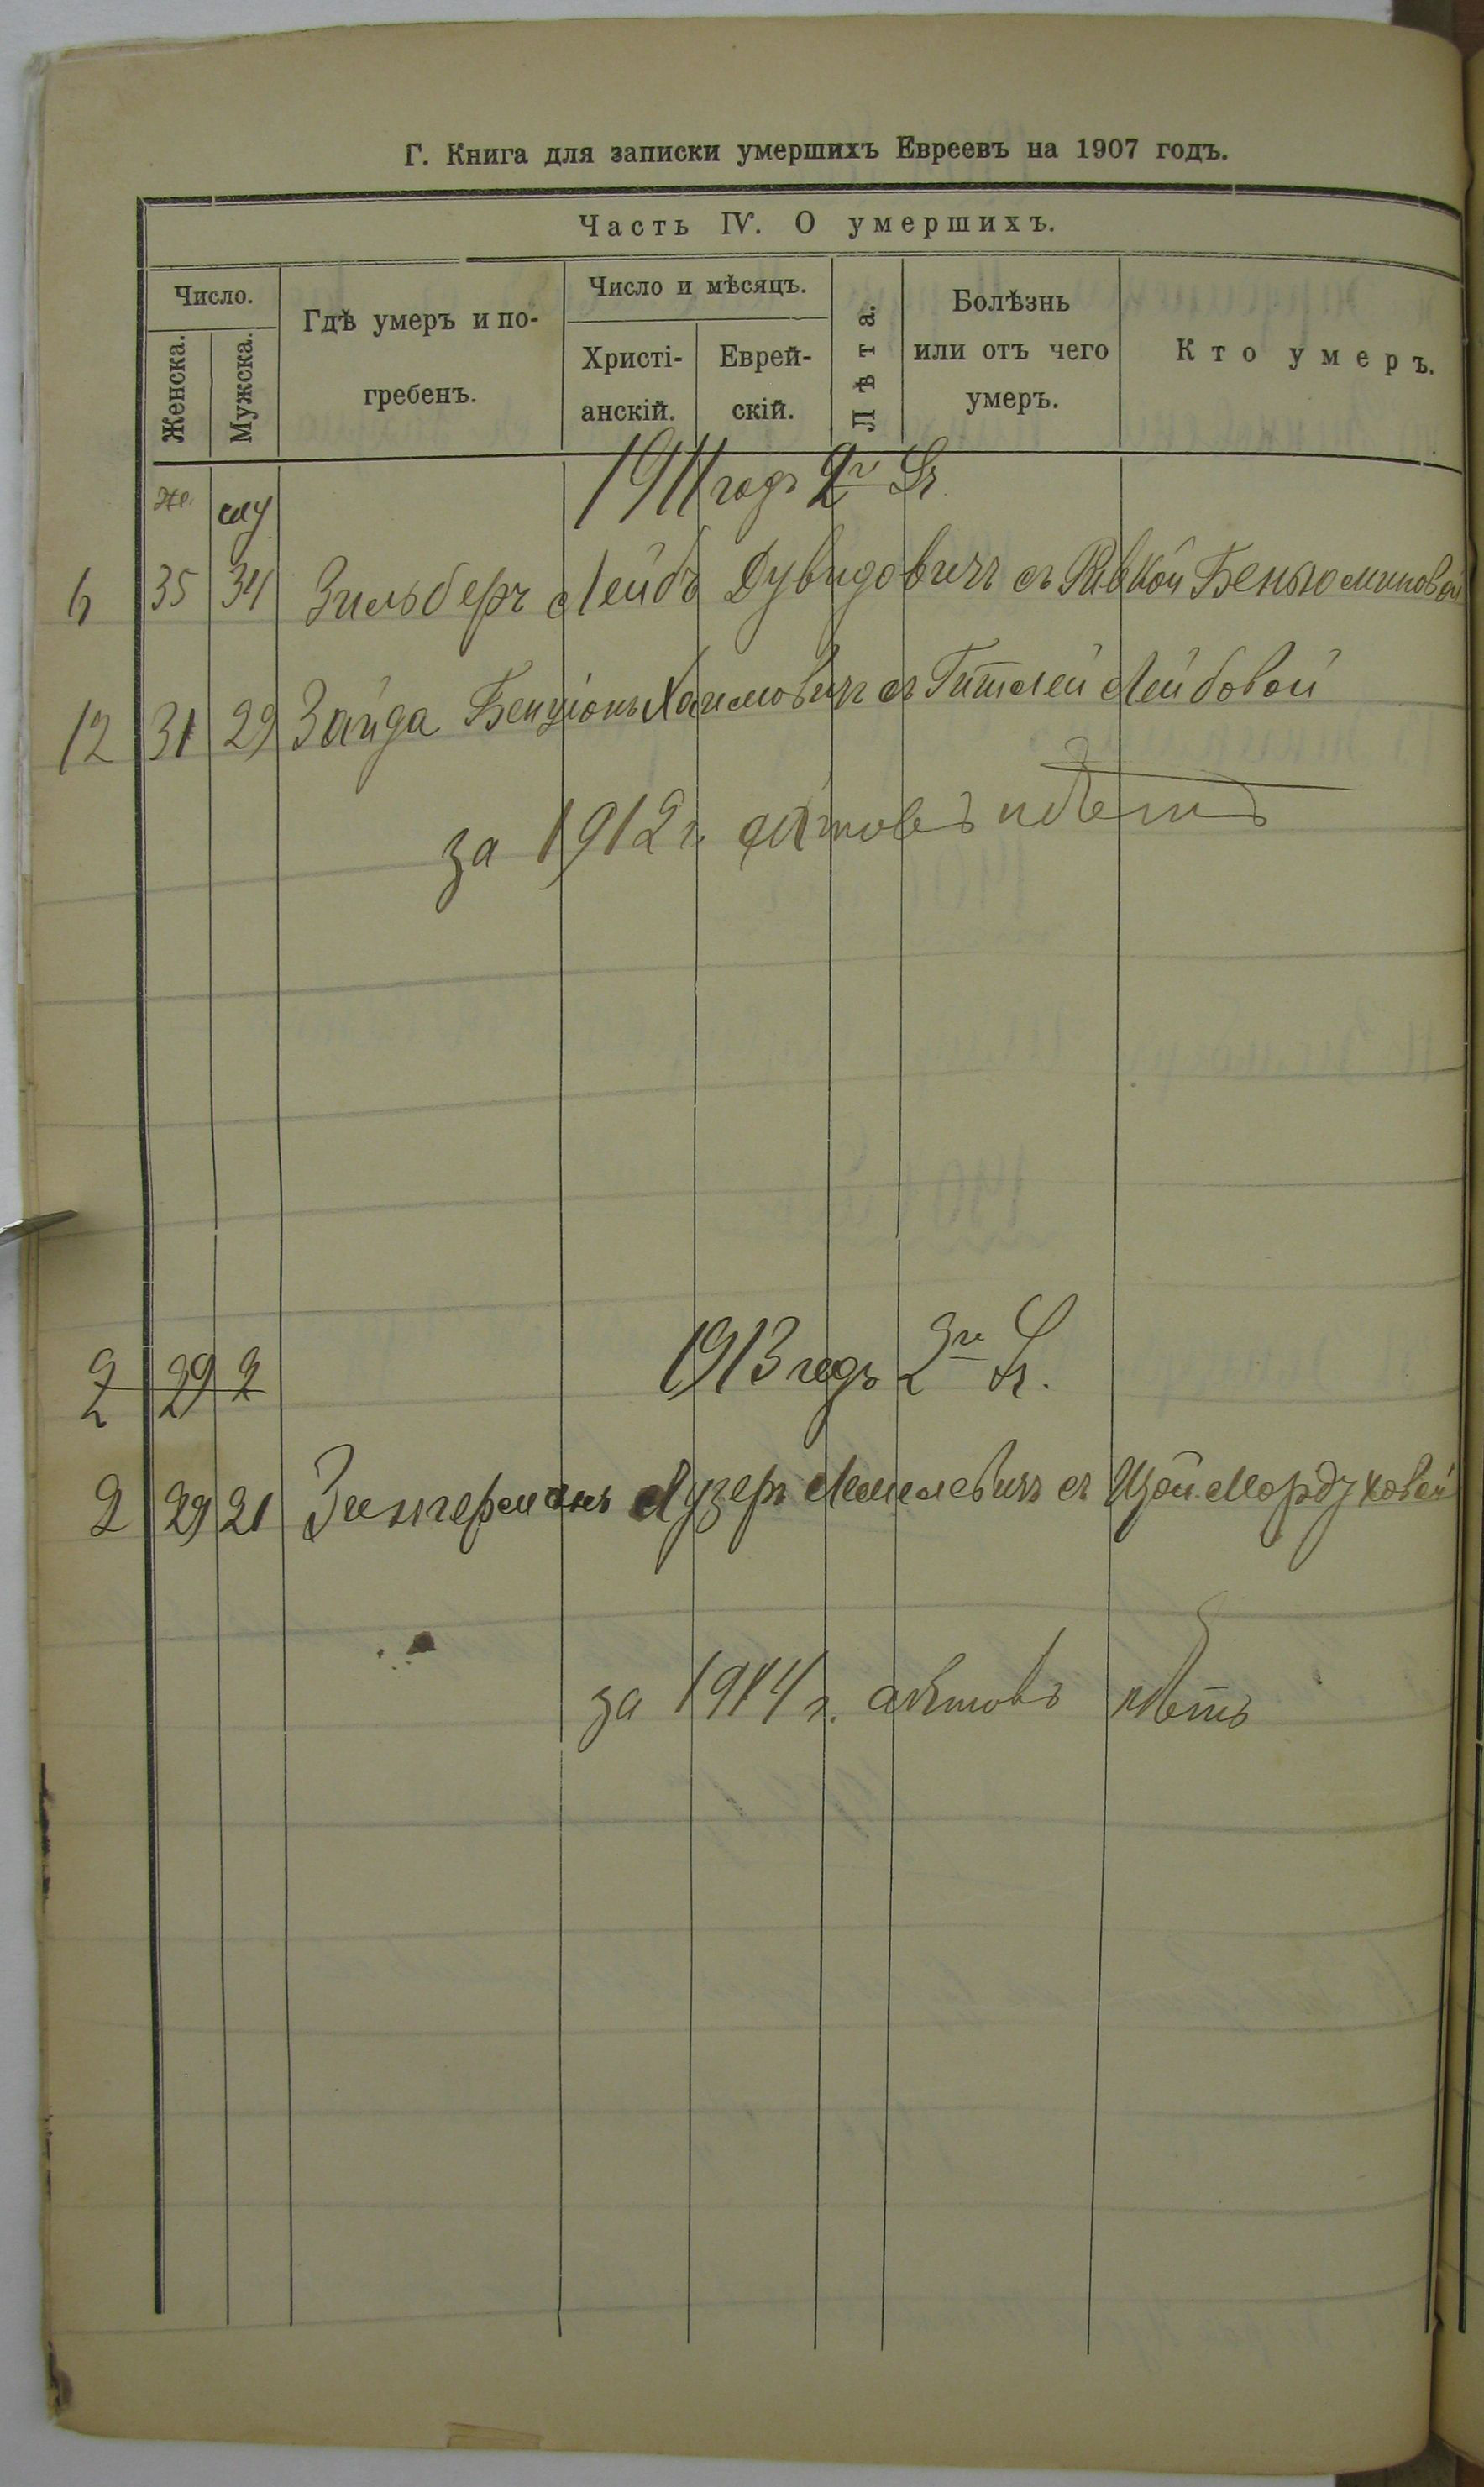 Г. Книга для записки умершихъ Евреевъ на 1907 годъ.
Часть IV. О умершихъ.
Число.
Женска.
Мужска.
Гдѣ умеръ и по-
гребенъ.
Число и мѣсяцъ.
Христі-
анскій.
Еврей-
скій.
Лѣта.
Болѣзнь
или отъ чего
умеръ.
Кто умеръ.
же. му
1911 годъ
6 35 34 Зильберъ Лейбъ Дувидовичъ съ Ривкой Беньюминовой
12 31 29 Зайда Бенціонъ Хаимовичъ съ Гитлей Лейбовой
за 1912 г. актовъ нѣтъ
2 29 2
1913 годъ
2 29 21 Зингерманъ Лузеръ съ Цѣой Мордуховой
за 1914 г. актовъ нѣтъ